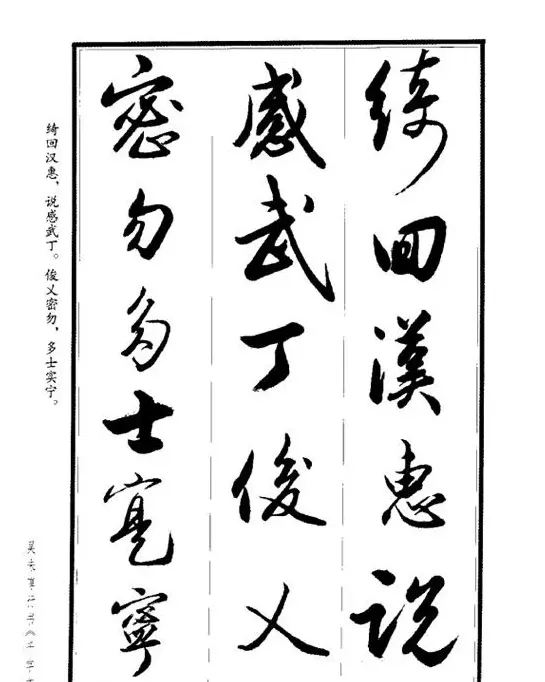 綺回漢惠説
感武丁俊乂
密勿多士寔寧
绮回汉惠，说感武丁。俊乂密勿，多士实宁。